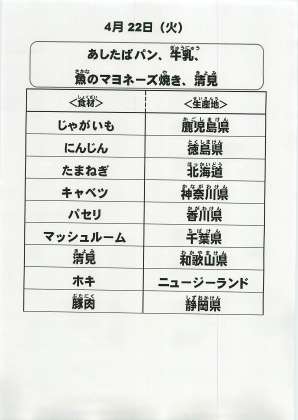 4月 22日（火）
あしたばパン、牛乳、
魚のマヨネーズ焼き、清見
＜食材＞ ＜生産地＞
じゃがいも 鹿児島県
にんじん 徳島県
たまねぎ 北海道
キャベツ 神奈川県
パセリ 香川県
マッシュルーム 千葉県
清見 和歌山県
ホキ ニュージーランド
豚肉 静岡県